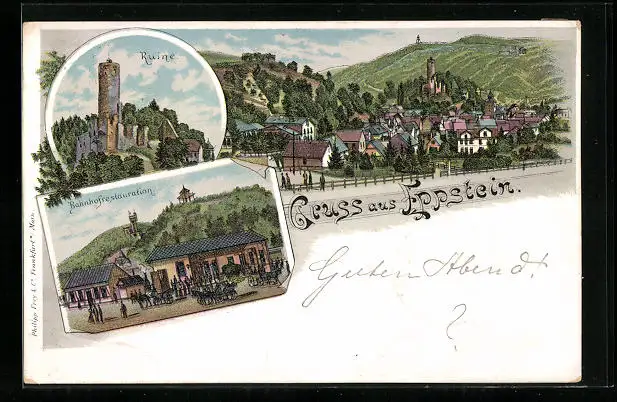 Ruine
Bahnhofrestauration
Gruss aus Eppstein.
Guten Abend!
?
Philipp Frey & Co. Frankfurt a/Main.